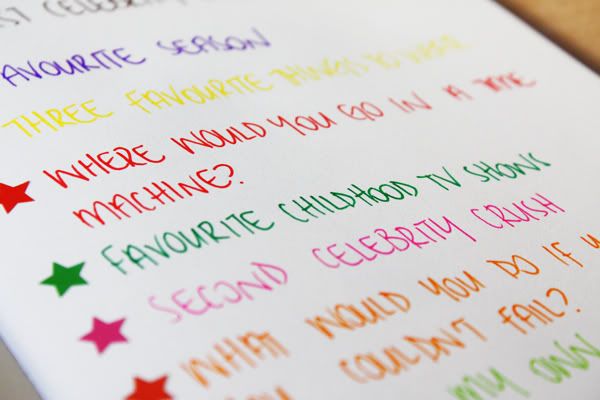 ST CELEBRITY
AVOURITE SEASON
THREE FAVOURITE THINGS TO
WHERE WOULD YOU GO IN A TIME
MACHINE?
FAVOURITE CHILDHOOD TV SHOWS
SECOND CELEBRITY CRUSH
WHAT WOULD YOU DO IF
COULDN'T FAIL?
MY OWN